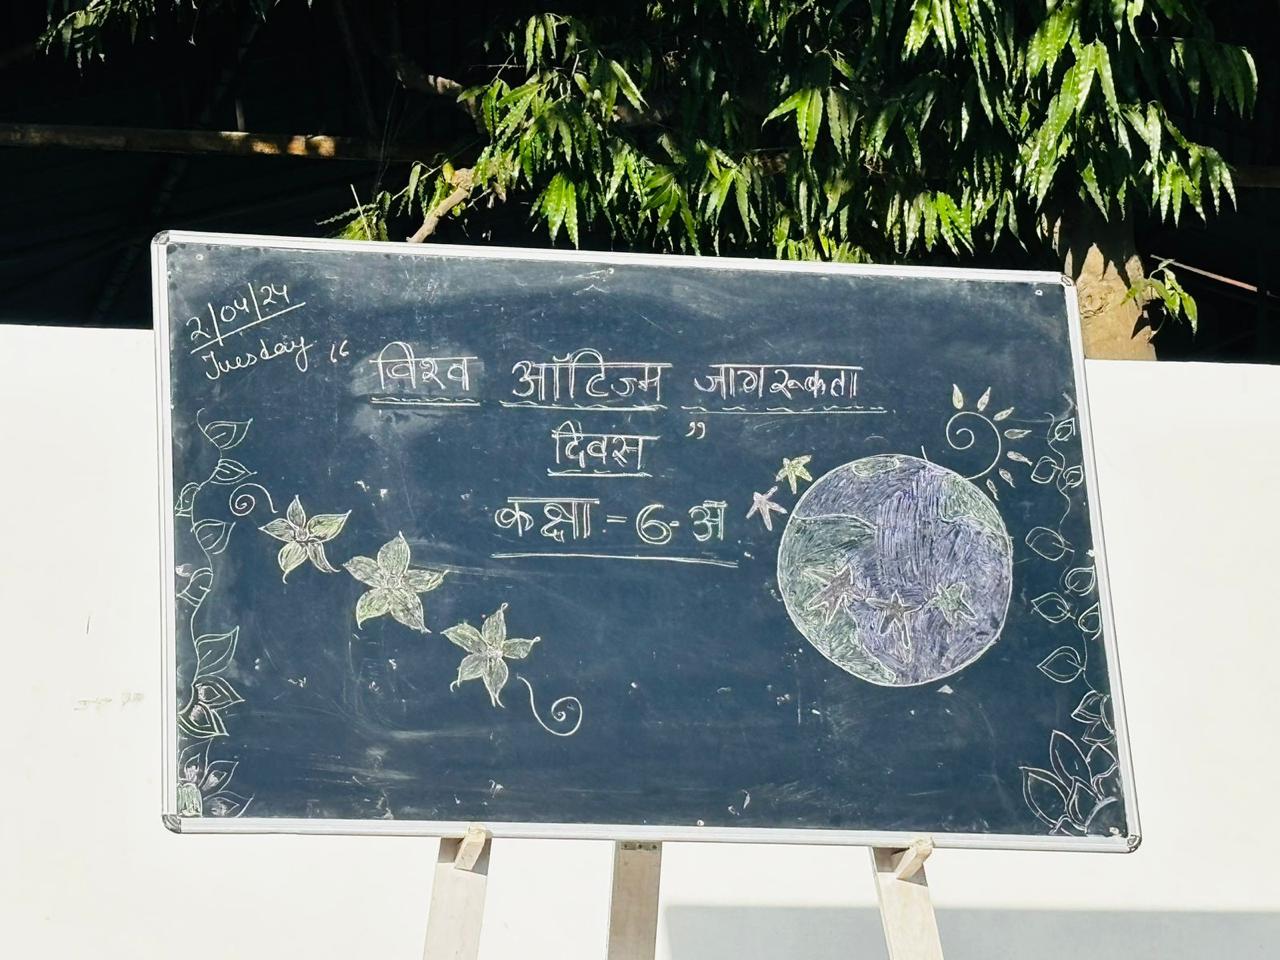 2/04/24
Tuesday
“विश्व ऑटिज्म जागरूकता
दिवस”
कक्षा = 6-अ